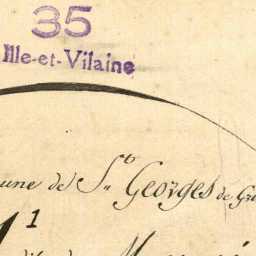 35
Ille-et-Vilaine
une de St Georges de Gr
1